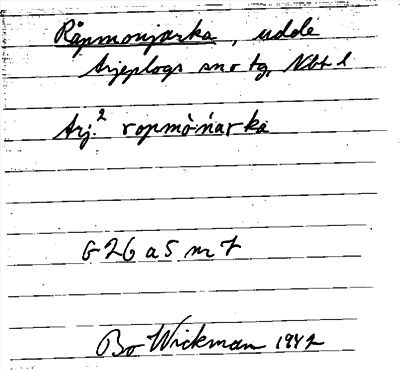 Råpmonjarka, udde
Arjeplogs sn o tg, Nbt l
Arj.² ropmòńarka
G 26 a 5 nr 7
Bo Wickman 1942